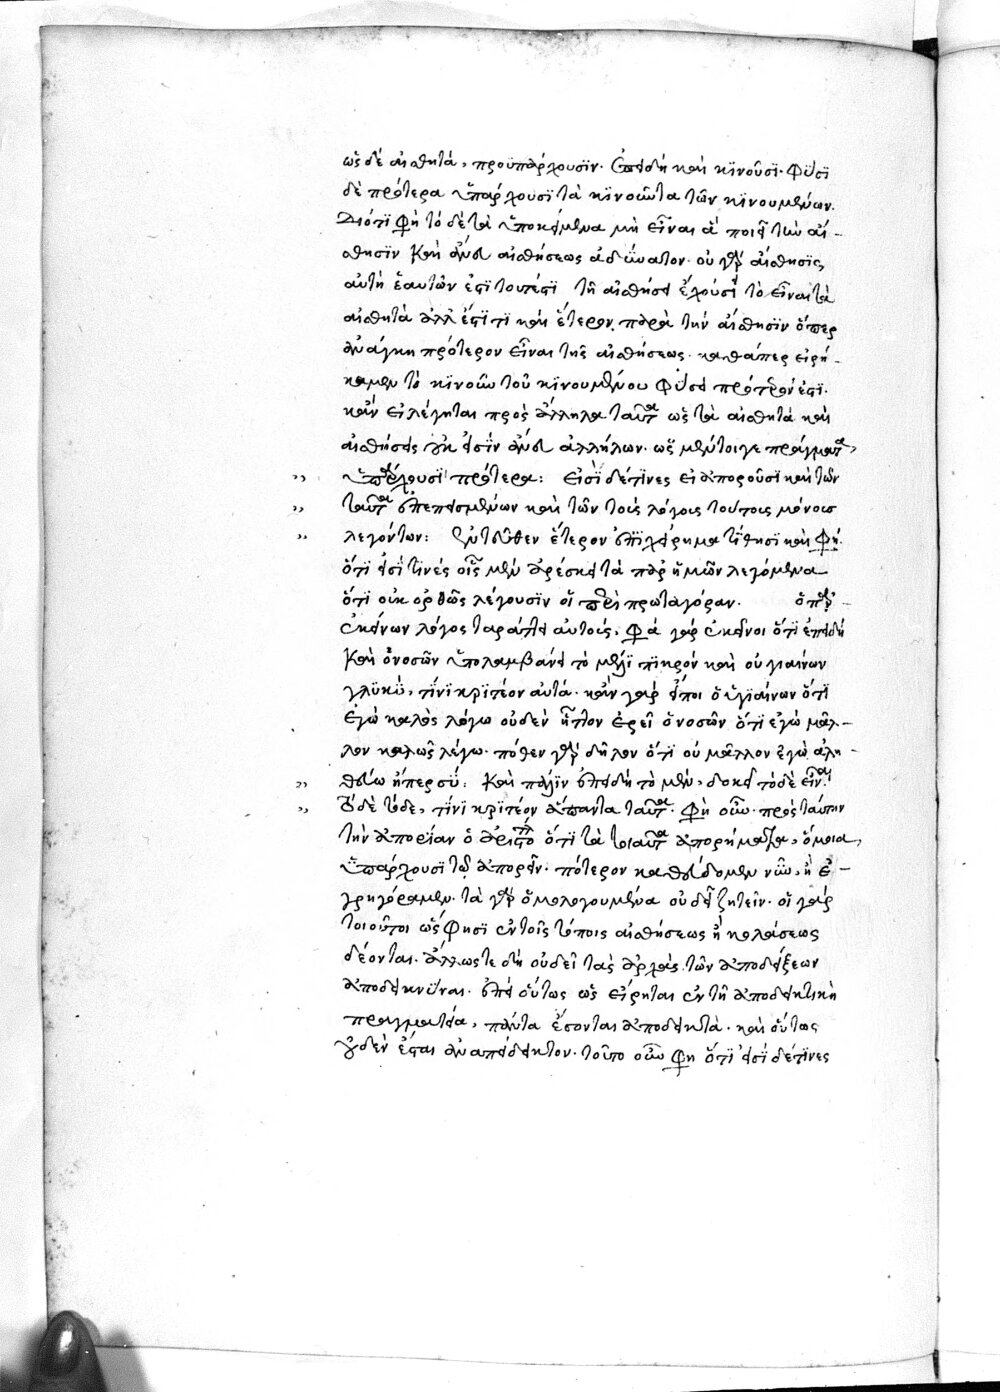 ὡς δὲ αἰσθητά, προϋπάρχουσιν. ἐπειδὴ καὶ κινοῦσι. φύσει
δὲ πρότερα ὑπάρχουσι τὰ κινοῦντα τῶν κινουμένων.
Διότι φη τὸ δὲ τὰ ὑποκείμενα μὴ εἶναι ἃ ποιεῖ τὴν αἴ-
σθησιν καὶ ἄνευ αἰσθήσεως ἀδύνατον. οὐ γὰρ αἴσθησις
αὐτὴ ἑαυτῶν ἐστι τουτέστι τῆ αἰσθήσει ἐχούση τὸ εἶναι τὰ
αἰσθητὰ ἀλλ' ἔστι τι καὶ ἕτερον παρὰ τὴν αἴσθησιν ὅπερ
ἀνάγκη πρότερον εἶναι τῆς αἰσθήσεως. καθάπερ εἰρή-
καμεν τὸ κινοῦν τοῦ κινουμένου φύσει πρότερόν ἐστι.
κἂν εἰ λέγηται πρὸς ἄλληλα ταῦτα ὡς τὰ αἰσθητὰ καὶ
αἰσθήσεις οὐκ εἰσὶν ἄνευ ἀλλήλων. ὡς μέντοιγε πράγματα,
,, ὑπάρχουσι πρότερα: Εἰσὶ δέ τινες οἳ ἀποροῦσι καὶ τῶν
,, ταῦτα πεπεισμένων καὶ τῶν τοὺς λόγους τούτους μόνον
,, λεγόντων: Ἐντεῦθεν ἕτερον ἐπιχείρημα τίθησι καὶ φη.
ὅτι εἰσί τινές οἷς μὲν ἀρέσκει τὰ παρ' ἡμῶν λεγόμενα
ὅτι οὐκ ὀρθῶς λέγουσιν οἱ περὶ πρωταγόραν. ὁ παρ' -
ἐκείνων λόγος ταράττει αὐτούς. φα γὰρ ἐκεῖνοι ὅτι ἐπειδὴ
καὶ ὁ νοσῶν ὑπολαμβάνει τὸ μέλι πικρὸν καὶ ὁ ὑγιαίνων
γλυκύ, τίνι κριτέον αὐτά. κἂν γὰρ εἴποι ὁ ὑγιαίνων ὅτι
ἐγὼ καλῶς λέγω οὐδὲν ἧττον ἐρεῖ ὁ νοσῶν ὅτι ἐγὼ μᾶλ-
λον καλῶς λέγω. πόθεν γὰρ δῆλον ὅτι οὐ μᾶλλον ἐγὼ ἀλη-
,, θεύω ἤπερ σύ: Καὶ πάλιν ἐπειδὴ τὸ μὲν, δοκεῖ τόδε εἶναι
,, τῶδε τόδε, τίνι κριτέον ἅπαντα ταῦτα. φη οὖν. πρὸς ταύτην
τὴν ἀπορίαν ὁ ἀριστο ὅτι τὰ τοιαῦτα ἀπορήματα, ὅμοια,
ὑπάρχουσι τῷ ἀπορεῖν. πότερον καθεύδομεν νῦν, ἢ ἐ-
γρηγόραμεν. τὰ γὰρ ὁμολογουμένα οὐ δεῖ ζητεῖν. οἱ γάρ
τοιοῦτοι ὥς φησι ἐν τοῖς τόποις αἰσθήσεως ἢ κολάσεως
δέονται. ἄλλως τε δὴ οὐ δεῖ τὰς ἀρχὰς τῶν ἀποδείξεων
ἀποδεικνύναι. ἐπεὶ οὕτως ὡς εἴρηται ἐν τῇ ἀποδεικτικῇ
πραγματεία, πάντα ἔσονται ἀποδεικτά. καὶ οὕτως
οὐδὲν ἔσται ἀναπόδεικτον. τοῦτο οὖν φη ὅτι εἰσὶ δέ τινες